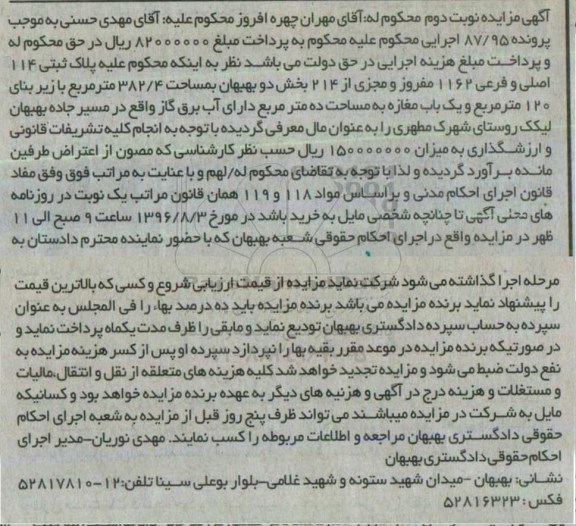 آگهی مزایده نوبت دوم محکوم له:آقای مهران چهره افروز محکوم علیه: آقای مهدی حسنی به موجب
پرونده ۸۷/۹۵ اجرایی محکوم علیه محکوم به پرداخت مبلغ ۸۲۰۰۰۰۰۰ ریال در حق محکوم له
و پرداخت مبلغ هزینه اجرایی در حق دولت می باشد نظر به اینکه محکوم علیه پلاک ثبتی ۱۱۴
اصلی و فرعی ۱۱۶۲ مفروز و مجزی از ۲۱۴ بخش دو بهبهان بمساحت ۳۸۲/۴ مترمربع با زیر بنای
۱۲۰ مترمربع و یک باب مغازه به مساحت ده متر مربع دارای آب برق گاز واقع در مسیر جاده بهبهان
لیکک روستای شهرک مطهری را به عنوان مال معرفی گردیده با توجه به انجام کلیه تشریفات قانونی
و ارزشگذاری به میزان ۱۵۰۰۰۰۰۰۰ ریال حسب نظر کارشناسی که مصون از اعتراض طرفین
مانده برآورد گردیده و لذا با توجه به تقاضای محکوم له/لهم و با عنایت به مراتب فوق وفق مفاد
قانون اجرای احکام مدنی و بر اساس مواد ۱۱۸ و ۱۱۹ همان قانون مراتب یک نوبت در روزنامه
های محلی آگهی تا چنانچه شخصی مایل به خرید باشد در مورخ ۱۳۹۶/۸/۳ ساعت ۹ صبح الی ۱۱
ظهر در مزایده واقع در اجرای احکام حقوقی شعبه بهبهان که با حضور نماینده محترم دادستان به
مرحله اجرا گذاشته می شود شرکت نماید مزایده از قیمت ارزیابی شروع و کسی که بالاترین قیمت
را پیشنهاد نماید برنده مزایده می باشد برنده مزایده باید ده درصد بها، را فی المجلس به عنوان
سپرده به حساب سپرده دادگستری بهبهان تودیع نماید و مابقی را ظرف مدت یکماه پرداخت نماید و
در صورتیکه برنده مزایده در موعد مقرر بقیه بها را نپردازد سپرده او پس از کسر هزینه مزایده به
نفع دولت ضبط می شود و مزایده تجدید خواهد شد کلیه هزینه های متعلقه از نقل و انتقال،مالیات
و مستغلات و هزینه درج در آگهی و هزنیه های دیگر به عهده برنده مزایده خواهد بود و کسانیکه
مایل به شرکت در مزایده میباشند می تواند ظرف پنج روز قبل از مزایده به شعبه اجرای احکام
حقوقی دادگستری بهبهان مراجعه و اطلاعات مربوطه را کسب نمایند. مهدی نوریان-مدیر اجرای
احکام حقوقی دادگستری بهبهان
نشانی: بهبهان -میدان شهید ستونه و شهید غلامی-بلوار بوعلی سینا تلفن:۱۲-۵۲۸۱۷۸۱۰
فکس : ۵۲۸۱۶۳۲۳